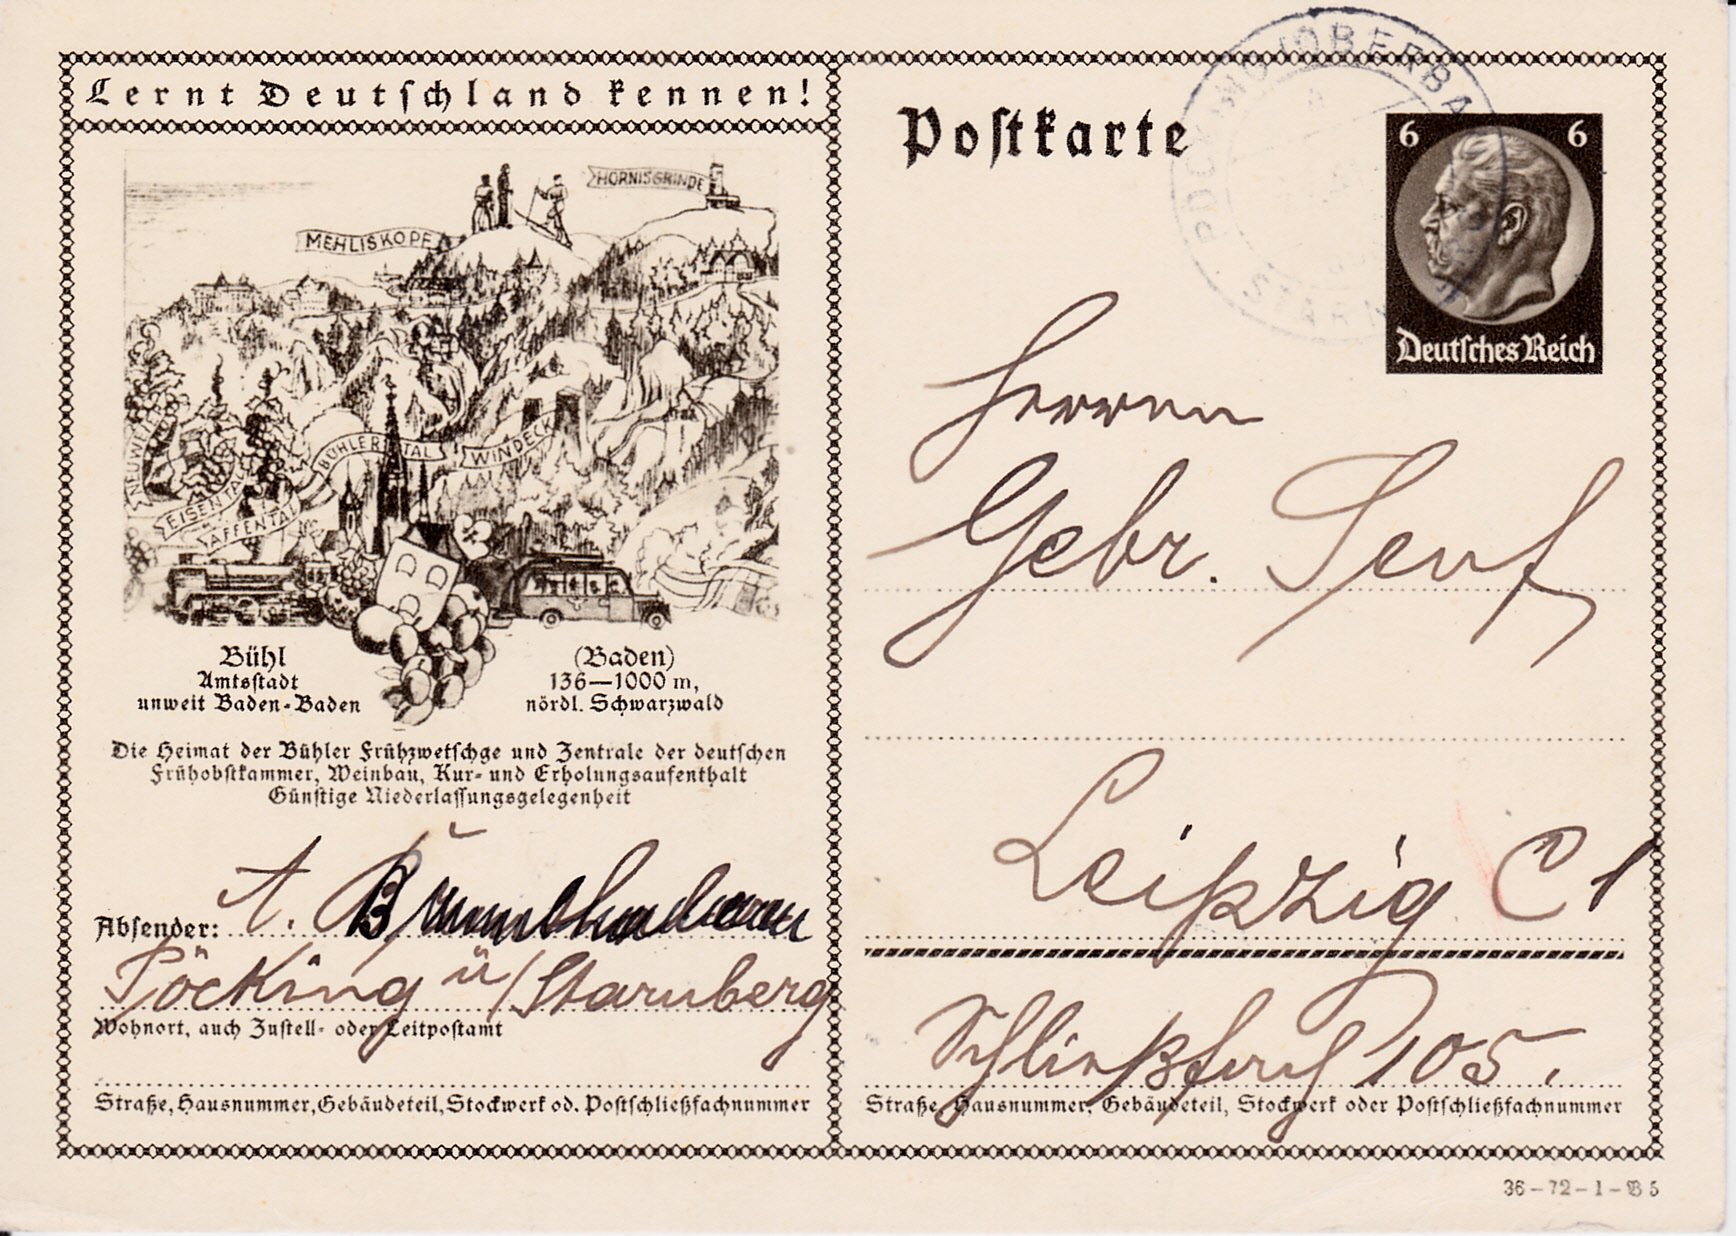 Lernt Deutschland kennen!
HORNISGRINDE
MEHLISKOPF
BÜHLERTAL
WINDECK
NEUWEI
EISENTAL
AFFENTAL
Bühl (Baden)
Amtsstadt 136—1000 m,
unweit Baden-Baden nördl. Schwarzwald
Die Heimat der Bühler Frühzwetschge und Zentrale der deutschen
Frühobstkammer, Weinbau, Kur- und Erholungsaufenthalt
Günstige Niederlassungsgelegenheit
Absender: A.
Pöcking ü/Starnberg
Wohnort, auch Zustell- oder Leitpostamt
Straße, Hausnummer, Gebäudeteil, Stockwerk od. Postschließfachnummer
Postkarte
OBERBA
STARN
6 6
Deutsches Reich
Herren
Gebr. Senf
Leipzig C 1
Schließfach 105.
Straße, Hausnummer, Gebäudeteil, Stockwerk oder Postschließfachnummer
36-72-1-B5